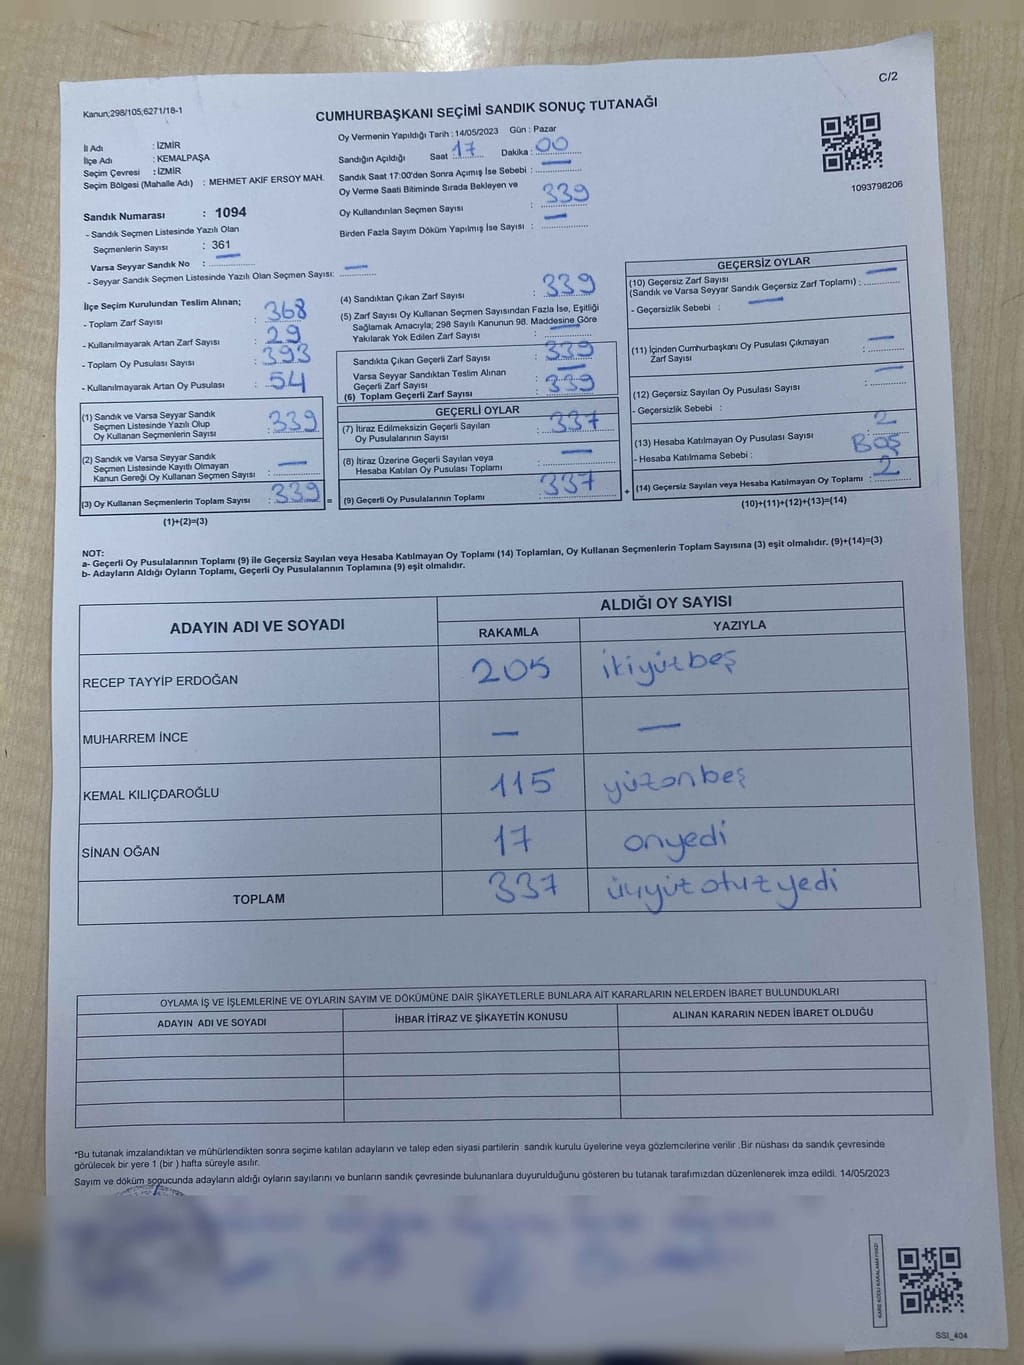 C/2
Kanun;298/105;6271/18-1
CUMHURBAŞKANI SEÇİMİ SANDIK SONUÇ TUTANAĞI
İl Adı : İZMİR
İlçe Adı : KEMALPAŞA
Seçim Çevresi : İZMİR
Seçim Bölgesi (Mahalle Adı) : MEHMET AKİF ERSOY MAH.
Sandık Numarası : 1094
- Sandık Seçmen Listesinde Yazılı Olan
Seçmenlerin Sayısı : 361
Varsa Seyyar Sandık No : —
- Seyyar Sandık Seçmen Listesinde Yazılı Olan Seçmen Sayısı: —
Oy Vermenin Yapıldığı Tarih : 14/05/2023 Gün : Pazar
Sandığın Açıldığı Saat : 17 Dakika : 00
Sandık Saat 17:00'den Sonra Açımış İse Sebebi : —
Oy Verme Saati Bitiminde Sırada Bekleyen ve
Oy Kullandırılan Seçmen Sayısı : 339
Birden Fazla Sayım Döküm Yapılmış İse Sayısı : —
1093798206
İlçe Seçim Kurulundan Teslim Alınan;
- Toplam Zarf Sayısı : 368
- Kullanılmayarak Artan Zarf Sayısı : 29
- Toplam Oy Pusulası Sayısı : 393
- Kullanılmayarak Artan Oy Pusulası : 54
(1) Sandık ve Varsa Seyyar Sandık
Seçmen Listesinde Yazılı Olup
Oy Kullanan Seçmenlerin Sayısı : 339
(2) Sandık ve Varsa Seyyar Sandık
Seçmen Listesinde Kayıtlı Olmayan
Kanun Gereği Oy Kullanan Seçmen Sayısı : —
(3) Oy Kullanan Seçmenlerin Toplam Sayısı : 339 =
(1)+(2)=(3)
(4) Sandıktan Çıkan Zarf Sayısı : 339
(5) Zarf Sayısı Oy Kullanan Seçmen Sayısından Fazla İse, Eşitliği
Sağlamak Amacıyla; 298 Sayılı Kanunun 98. Maddesine Göre
Yakılarak Yok Edilen Zarf Sayısı : —
Sandıkta Çıkan Geçerli Zarf Sayısı : 339
Varsa Seyyar Sandıktan Teslim Alınan
Geçerli Zarf Sayısı : —
(6) Toplam Geçerli Zarf Sayısı : 339
GEÇERLİ OYLAR
(7) İtiraz Edilmeksizin Geçerli Sayılan
Oy Pusulalarının Sayısı : 337
(8) İtiraz Üzerine Geçerli Sayılan veya
Hesaba Katılan Oy Pusulası Toplamı : —
(9) Geçerli Oy Pusulalarının Toplamı : 337 +
GEÇERSİZ OYLAR
(10) Geçersiz Zarf Sayısı
(Sandık ve Varsa Seyyar Sandık Geçersiz Zarf Toplamı) : —
- Geçersizlik Sebebi : —
(11) İçinden Cumhurbaşkanı Oy Pusulası Çıkmayan
Zarf Sayısı : —
(12) Geçersiz Sayılan Oy Pusulası Sayısı : —
- Geçersizlik Sebebi :
(13) Hesaba Katılmayan Oy Pusulası Sayısı : 2
- Hesaba Katılmama Sebebi : BOŞ
(14) Geçersiz Sayılan veya Hesaba Katılmayan Oy Toplamı : 2
(10)+(11)+(12)+(13)=(14)
NOT:
a- Geçerli Oy Pusulalarının Toplamı (9) ile Geçersiz Sayılan veya Hesaba Katılmayan Oy Toplamı (14) Toplamları, Oy Kullanan Seçmenlerin Toplam Sayısına (3) eşit olmalıdır. (9)+(14)=(3)
b- Adayların Aldığı Oyların Toplamı, Geçerli Oy Pusulalarının Toplamına (9) eşit olmalıdır.
ADAYIN ADI VE SOYADI
ALDIĞI OY SAYISI
RAKAMLA YAZIYLA
RECEP TAYYİP ERDOĞAN 205 ikiyüzbeş
MUHARREM İNCE — —
KEMAL KILIÇDAROĞLU 115 yüzonbeş
SİNAN OĞAN 17 onyedi
TOPLAM 337 üçyüz otuz yedi
OYLAMA İŞ VE İŞLEMLERİNE VE OYLARIN SAYIM VE DÖKÜMÜNE DAİR ŞİKAYETLERLE BUNLARA AİT KARARLARIN NELERDEN İBARET BULUNDUKLARI
ADAYIN ADI VE SOYADI İHBAR İTİRAZ VE ŞİKAYETİN KONUSU ALINAN KARARIN NEDEN İBARET OLDUĞU
*Bu tutanak imzalandıktan ve mühürlendikten sonra seçime katılan adayların ve talep eden siyasi partilerin sandık kurulu üyelerine veya gözlemcilerine verilir .Bir nüshası da sandık çevresinde
görülecek bir yere 1 (bir ) hafta süreyle asılır.
Sayım ve döküm sonucunda adayların aldığı oyların sayılarını ve bunların sandık çevresinde bulunanlara duyurulduğunu gösteren bu tutanak tarafımızdan düzenlenerek imza edildi. 14/05/2023
SSI_404